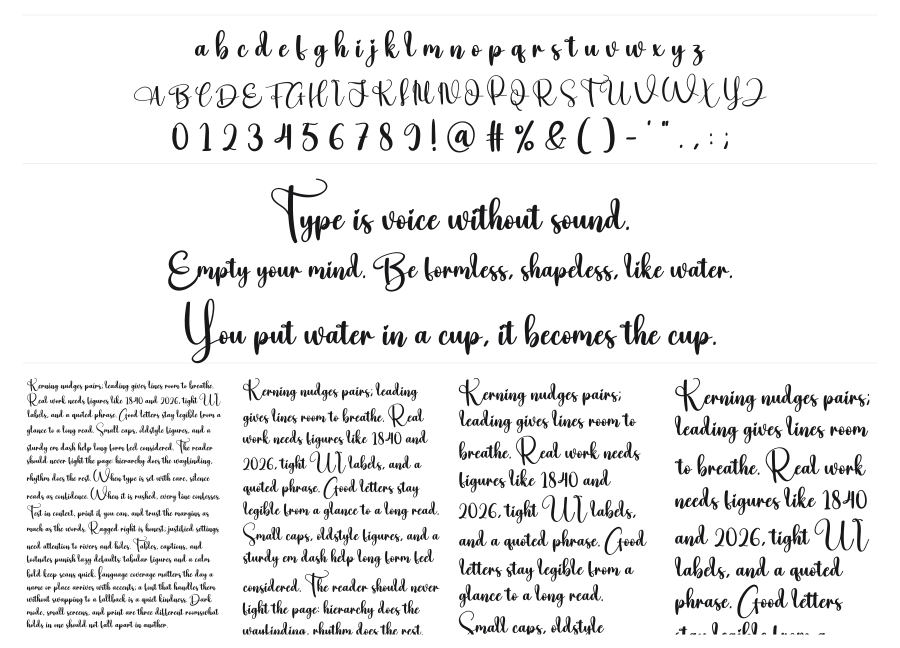 a b c d e f g h i j k l m n o p q r s t u v w x y z
A B C D E F G H I J K L M N O P Q R S T U V W X Y Z
0 1 2 3 4 5 6 7 8 9 ! @ # % & ( ) - ' " . , : ;
Type is voice without sound.
Empty your mind. Be formless, shapeless, like water.
You put water in a cup, it becomes the cup.
Kerning nudges pairs; leading gives lines room to breathe.
Real work needs figures like 1840 and 2026, tight UI
labels, and a quoted phrase. Good letters stay legible from a
glance to a long read. Small caps, oldstyle figures, and a
sturdy em dash help long form feel considered. The reader
should never fight the page: hierarchy does the wayfinding,
rhythm does the rest. When type is set with care, silence
reads as confidence. When it is rushed, every line confesses.
Test in context, print if you can, and trust the margins as
much as the words. Ragged right is honest; justified settings
need attention to rivers and holes. Tables, captions, and
footnotes punish lazy defaults; tabular figures and a calm
bold keep scans quick. Language coverage matters the day a
name or place arrives with accents; a font that handles them
without swapping to a fallback is a quiet kindness. Dark
mode, small screens, and print are three different rooms; what
holds in one should not fall apart in another.
Kerning nudges pairs; leading
gives lines room to breathe. Real
work needs figures like 1840 and
2026, tight UI labels, and a
quoted phrase. Good letters stay
legible from a glance to a long read.
Small caps, oldstyle figures, and a
sturdy em dash help long form feel
considered. The reader should never
fight the page: hierarchy does the
wayfinding, rhythm does the rest.
Kerning nudges pairs;
leading gives lines room to
breathe. Real work needs
figures like 1840 and
2026, tight UI labels,
and a quoted phrase. Good
letters stay legible from a
glance to a long read.
Small caps, oldstyle
Kerning nudges pairs;
leading gives lines room
to breathe. Real work
needs figures like 1840
and 2026, tight UI
labels, and a quoted
phrase. Good letters
stay legible from a